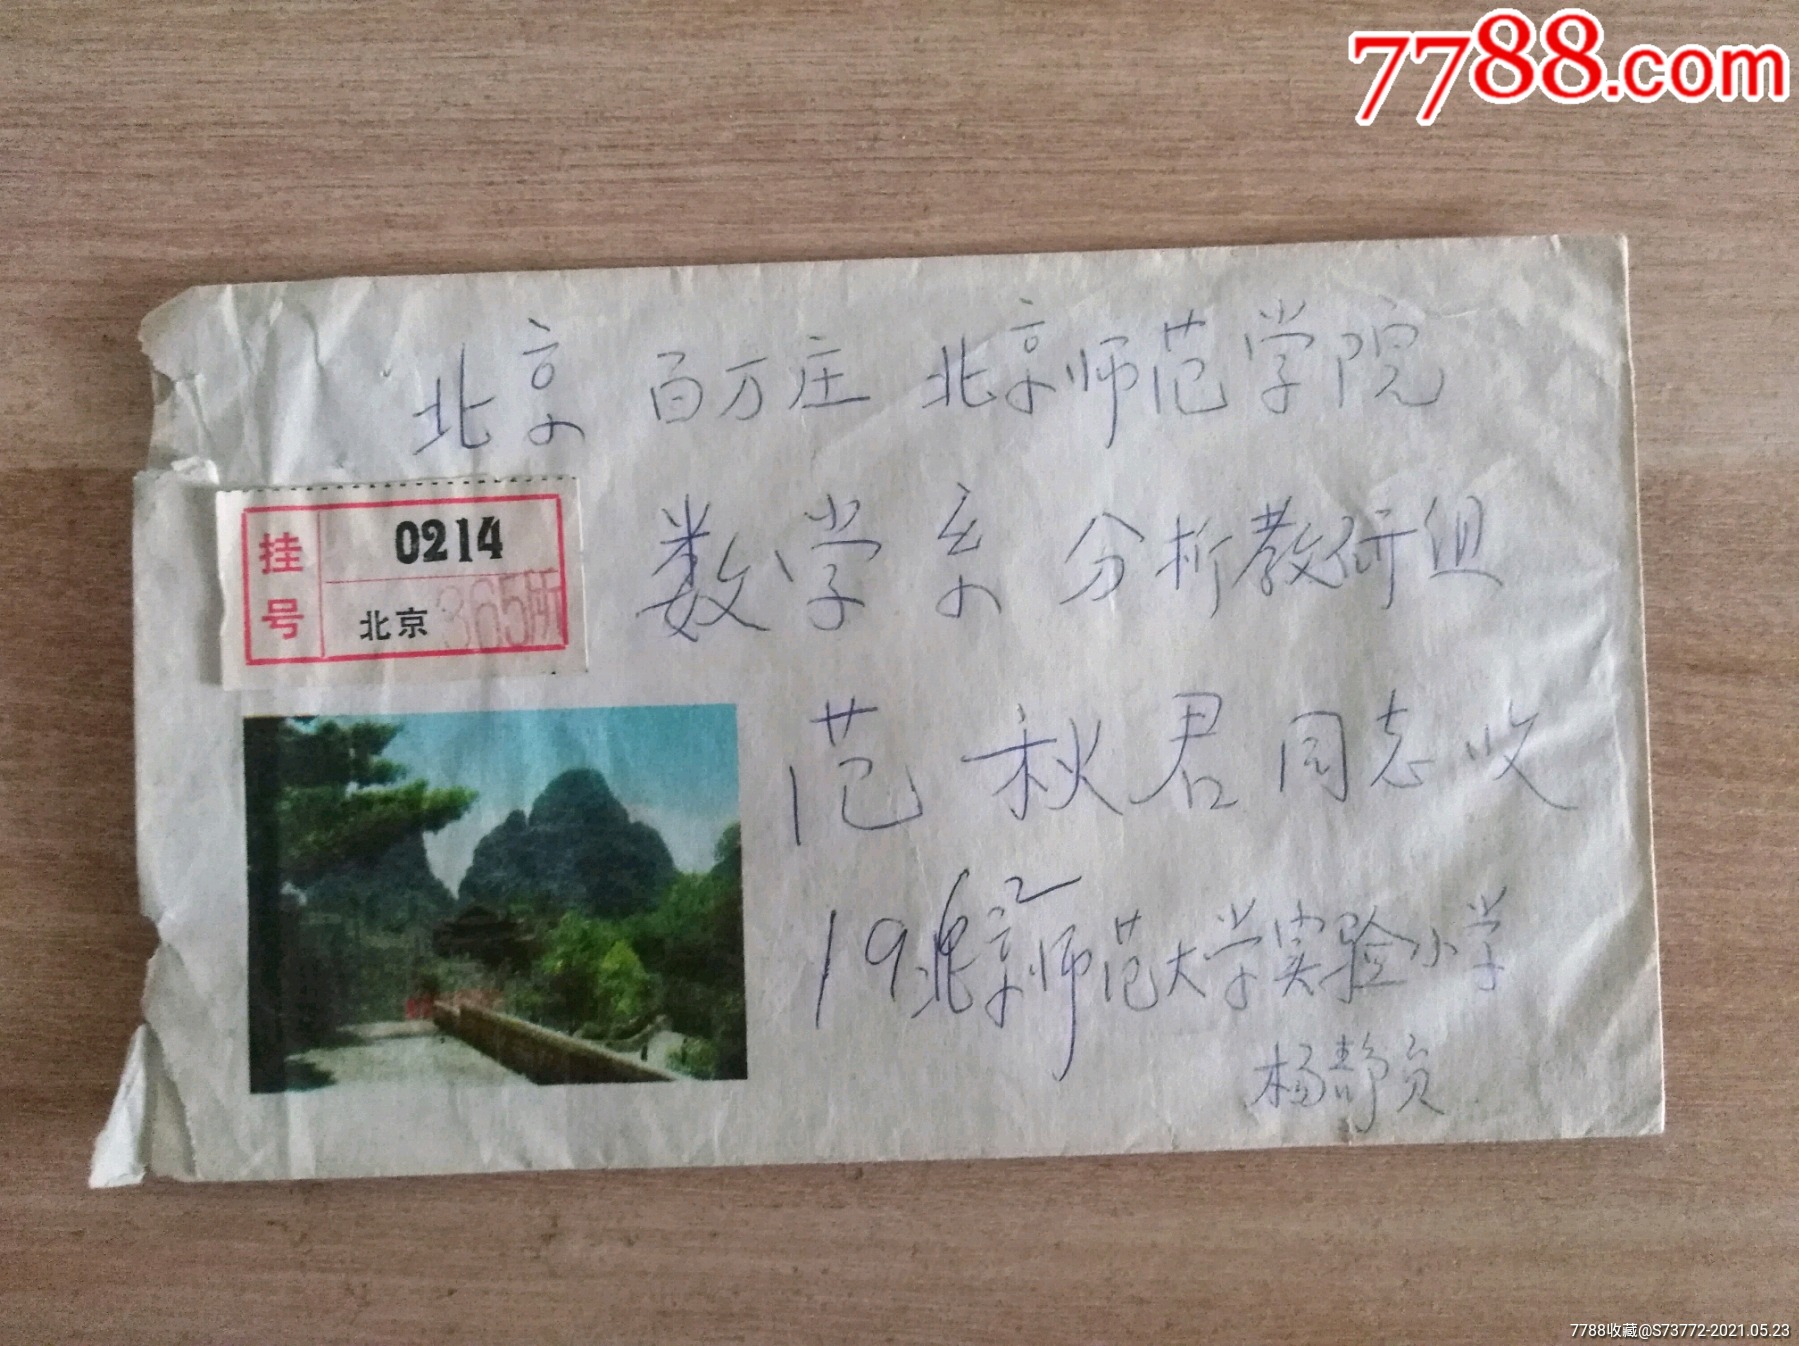 7788.com
北京 百万庄 北京师范学院
挂号
0214
北京 365所
数学系 分析教研组
范秋君同志收
19北京师范大学实验小学
杨静贞
7788收藏@S73772-2021.05.23